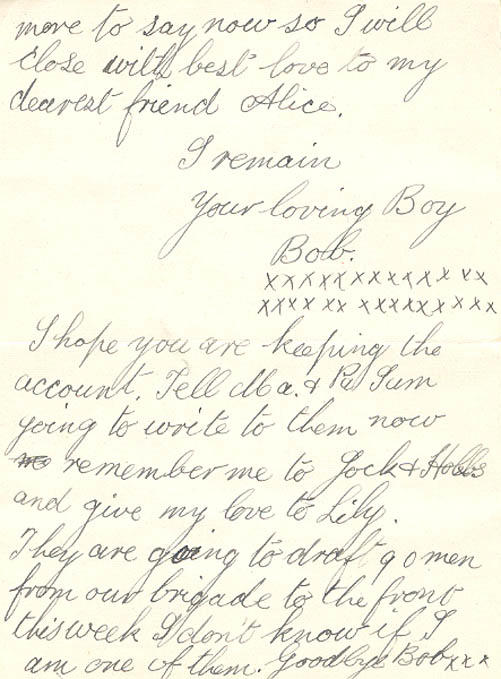 more to say now so I will
close with best love to my
dearest friend Alice.
I remain
Your loving Boy
Bob.
xxxxxxxxxxxxxx xx
xxxx xx xxxxxxxxxx
I hope you are keeping the
account. Tell Ma. & Pa I am
going to write to them now
remember me to Jock & Hobbs
and give my love to Lily.
They are going to draft 90 men
from our brigade to the front
this week I don't know if I
am one of them. Goodbye Bob xxx